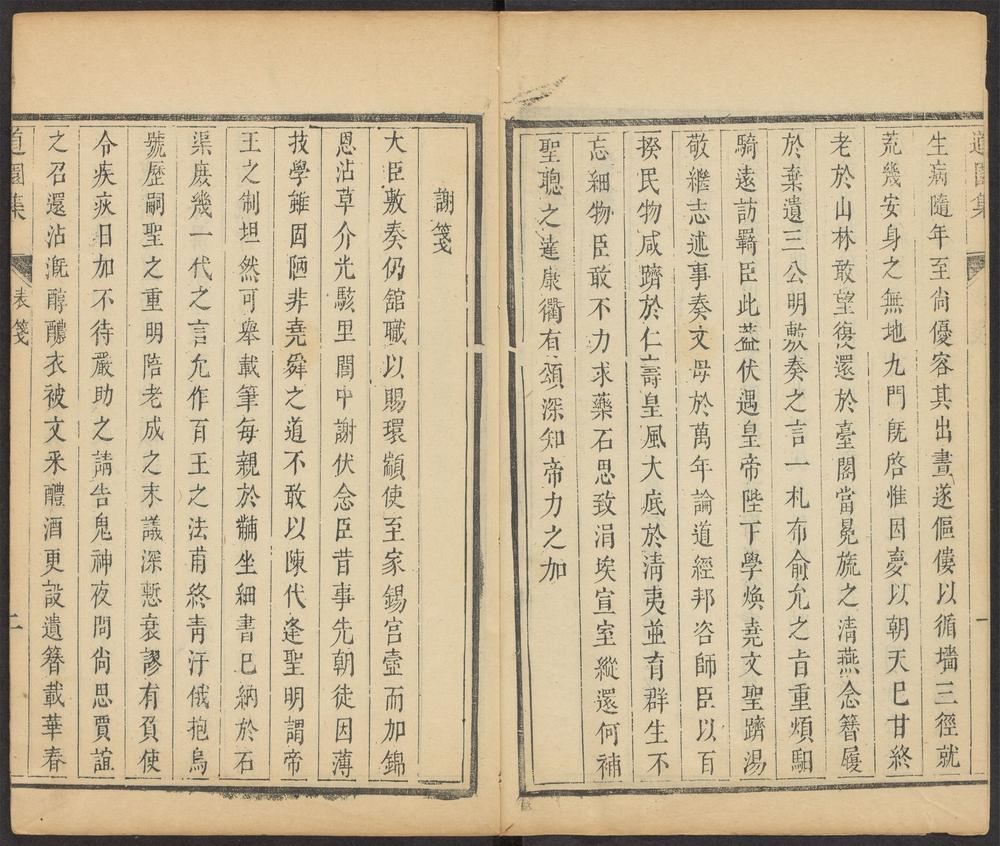 道園集
生病隨年至尙優容其出晝遂傴僂以循墻三徑就
荒幾安身之無地九門旣啓惟因夢以朝天巳甘終
老於山林敢望復還於臺閣當晃旒之淸燕念簪履
於棄遺三公明敷奏之言一札布俞允之旨重煩馹
騎遠訪羇臣此葢伏遇皇帝陛下學煥堯文聖躋湯
敬繼志述事奏文母於萬年論道經邦咨師臣以百
揆民物咸躋於仁壽皇風大底於淸夷並育群生不
忘細物臣敢不力求藥石思致涓埃宣室縱還何補
聖聰之達康衢有頌深知帝力之加
謝箋
大臣敷奏仍舘職以賜環顓使至家錫宫壺而加錦
恩沾草介光駭里閭中謝伏念臣昔事先朝徒因薄
技學雖固陋非堯舜之道不敢以陳代逢聖明謂帝
王之制坦然可舉載筆每親於黼坐細書巳納於石
渠庶幾一代之言允作百王之法甫終靑汗俄抱烏
號歷嗣聖之重明陪老成之末議深慙衰謬有負使
令疾疢日加不待嚴助之請告鬼神夜問尙思賈誼
之召還沾漑醇醲衣被文釆醴酒更設遺簪載華春
道園集 表箋 二